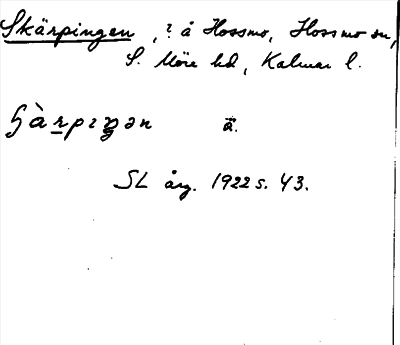 Skärpingen, ? å Hossmo, Hossmo sn,
S. Möre hd, Kalmar l.
ä.
SL årg. 1922 s. 43.